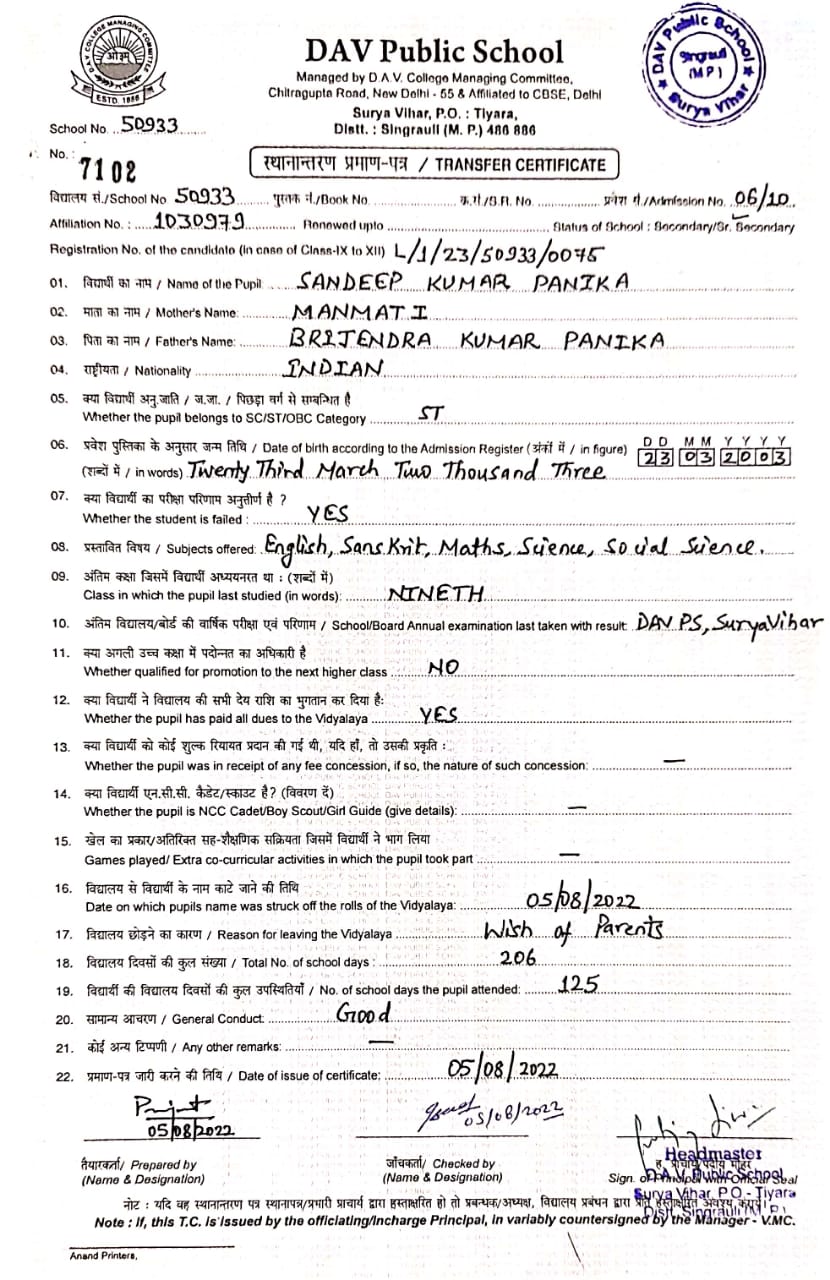 D.A.V. COLLEGE MANAGING COMMITTEE
ओ३म्
ESTD. 1886
DAV Public School
Managed by D.A.V. College Managing Committee,
Chitragupta Road, New Delhi - 55 & Affiliated to CBSE, Delhi
Surya Vihar, P.O. : Tiyara,
Distt. : Singrauli (M. P.) 486 886
DAV Public School
Singrauli
(M P)
Surya Vihar
School No. 50933
No. : 7102
स्थानान्तरण प्रमाण-पत्र / TRANSFER CERTIFICATE
विद्यालय सं./School No 50933 पुस्तक नं./Book No. क्र.सं./S.R. No. प्रवेश सं./Admission No. 06/10
Affiliation No. : 1030979 Renewed upto Status of School : Secondary/Sr. Secondary
Registration No. of the candidate (in case of Class-IX to XII) L/1/23/50933/0075
01. विद्यार्थी का नाम / Name of the Pupil SANDEEP KUMAR PANIKA
02. माता का नाम / Mother's Name: MANMATI
03. पिता का नाम / Father's Name: BRIJENDRA KUMAR PANIKA
04. राष्ट्रीयता / Nationality INDIAN
05. क्या विद्यार्थी अनु.जाति / ज.जा. / पिछड़ा वर्ग से सम्बन्धित है
Whether the pupil belongs to SC/ST/OBC Category ST
06. प्रवेश पुस्तिका के अनुसार जन्म तिथि / Date of birth according to the Admission Register (अंकों में / in figure) D D M M Y Y Y Y 23 03 2003
(शब्दों में / in words) Twenty Third March Two Thousand Three
07. क्या विद्यार्थी का परीक्षा परिणाम अनुत्तीर्ण है ?
Whether the student is failed : YES
08. प्रस्तावित विषय / Subjects offered: English, Sanskrit, Maths, Science, Social Science.
09. अंतिम कक्षा जिसमें विद्यार्थी अध्ययनरत था : (शब्दों में)
Class in which the pupil last studied (in words): NINETH
10. अंतिम विद्यालय/बोर्ड की वार्षिक परीक्षा एवं परिणाम / School/Board Annual examination last taken with result: DAV PS, Surya Vihar
11. क्या अगली उच्च कक्षा में पदोन्नत का अधिकारी है
Whether qualified for promotion to the next higher class NO
12. क्या विद्यार्थी ने विद्यालय की सभी देय राशि का भुगतान कर दिया है:
Whether the pupil has paid all dues to the Vidyalaya YES
13. क्या विद्यार्थी को कोई शुल्क रियायत प्रदान की गई थी, यदि हाँ, तो उसकी प्रकृति :
Whether the pupil was in receipt of any fee concession, if so, the nature of such concession: —
14. क्या विद्यार्थी एन.सी.सी. कैडेट/स्काउट है? (विवरण दें)
Whether the pupil is NCC Cadet/Boy Scout/Girl Guide (give details): —
15. खेल का प्रकार/अतिरिक्त सह-शैक्षणिक सक्रियता जिसमें विद्यार्थी ने भाग लिया
Games played/ Extra co-curricular activities in which the pupil took part —
16. विद्यालय से विद्यार्थी के नाम काटे जाने की तिथि
Date on which pupils name was struck off the rolls of the Vidyalaya: 05/08/2022
17. विद्यालय छोड़ने का कारण / Reason for leaving the Vidyalaya Wish of Parents
18. विद्यालय दिवसों की कुल संख्या / Total No. of school days : 206
19. विद्यार्थी की विद्यालय दिवसों की कुल उपस्थितियाँ / No. of school days the pupil attended: 125
20. सामान्य आचरण / General Conduct: Good
21. कोई अन्य टिप्पणी / Any other remarks: —
22. प्रमाण-पत्र जारी करने की तिथि / Date of issue of certificate: 05/08/2022
05/08/2022
05/08/2022
तैयारकर्ता/ Prepared by
(Name & Designation)
जाँचकर्ता/ Checked by
(Name & Designation)
Headmaster
D.A.V. Public School
Sign. of Principal with Official Seal
Surya Vihar, P.O - Tiyara
Dist. Singrauli (M.P.)
नोट : यदि यह स्थानान्तरण पत्र स्थानापत्र/प्रभारी प्राचार्य द्वारा हस्ताक्षरित हो तो प्रबन्धक/अध्यक्ष, विद्यालय प्रबंधन द्वारा प्रति हस्ताक्षरित अवश्य कराएं।
Note : If, this T.C. is issued by the officiating/Incharge Principal, in variably countersigned by the Manager - V.MC.
Anand Printers,